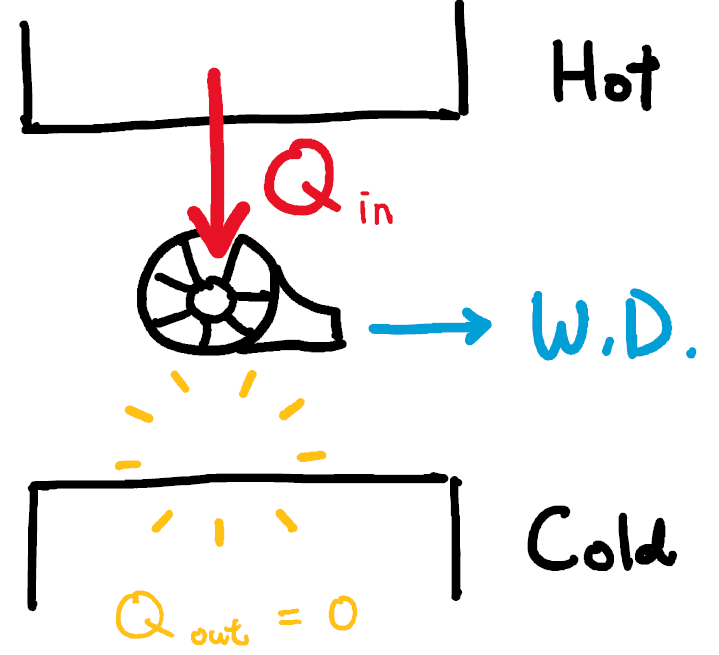 Hot
Q in
W.D.
Cold
Q out = 0